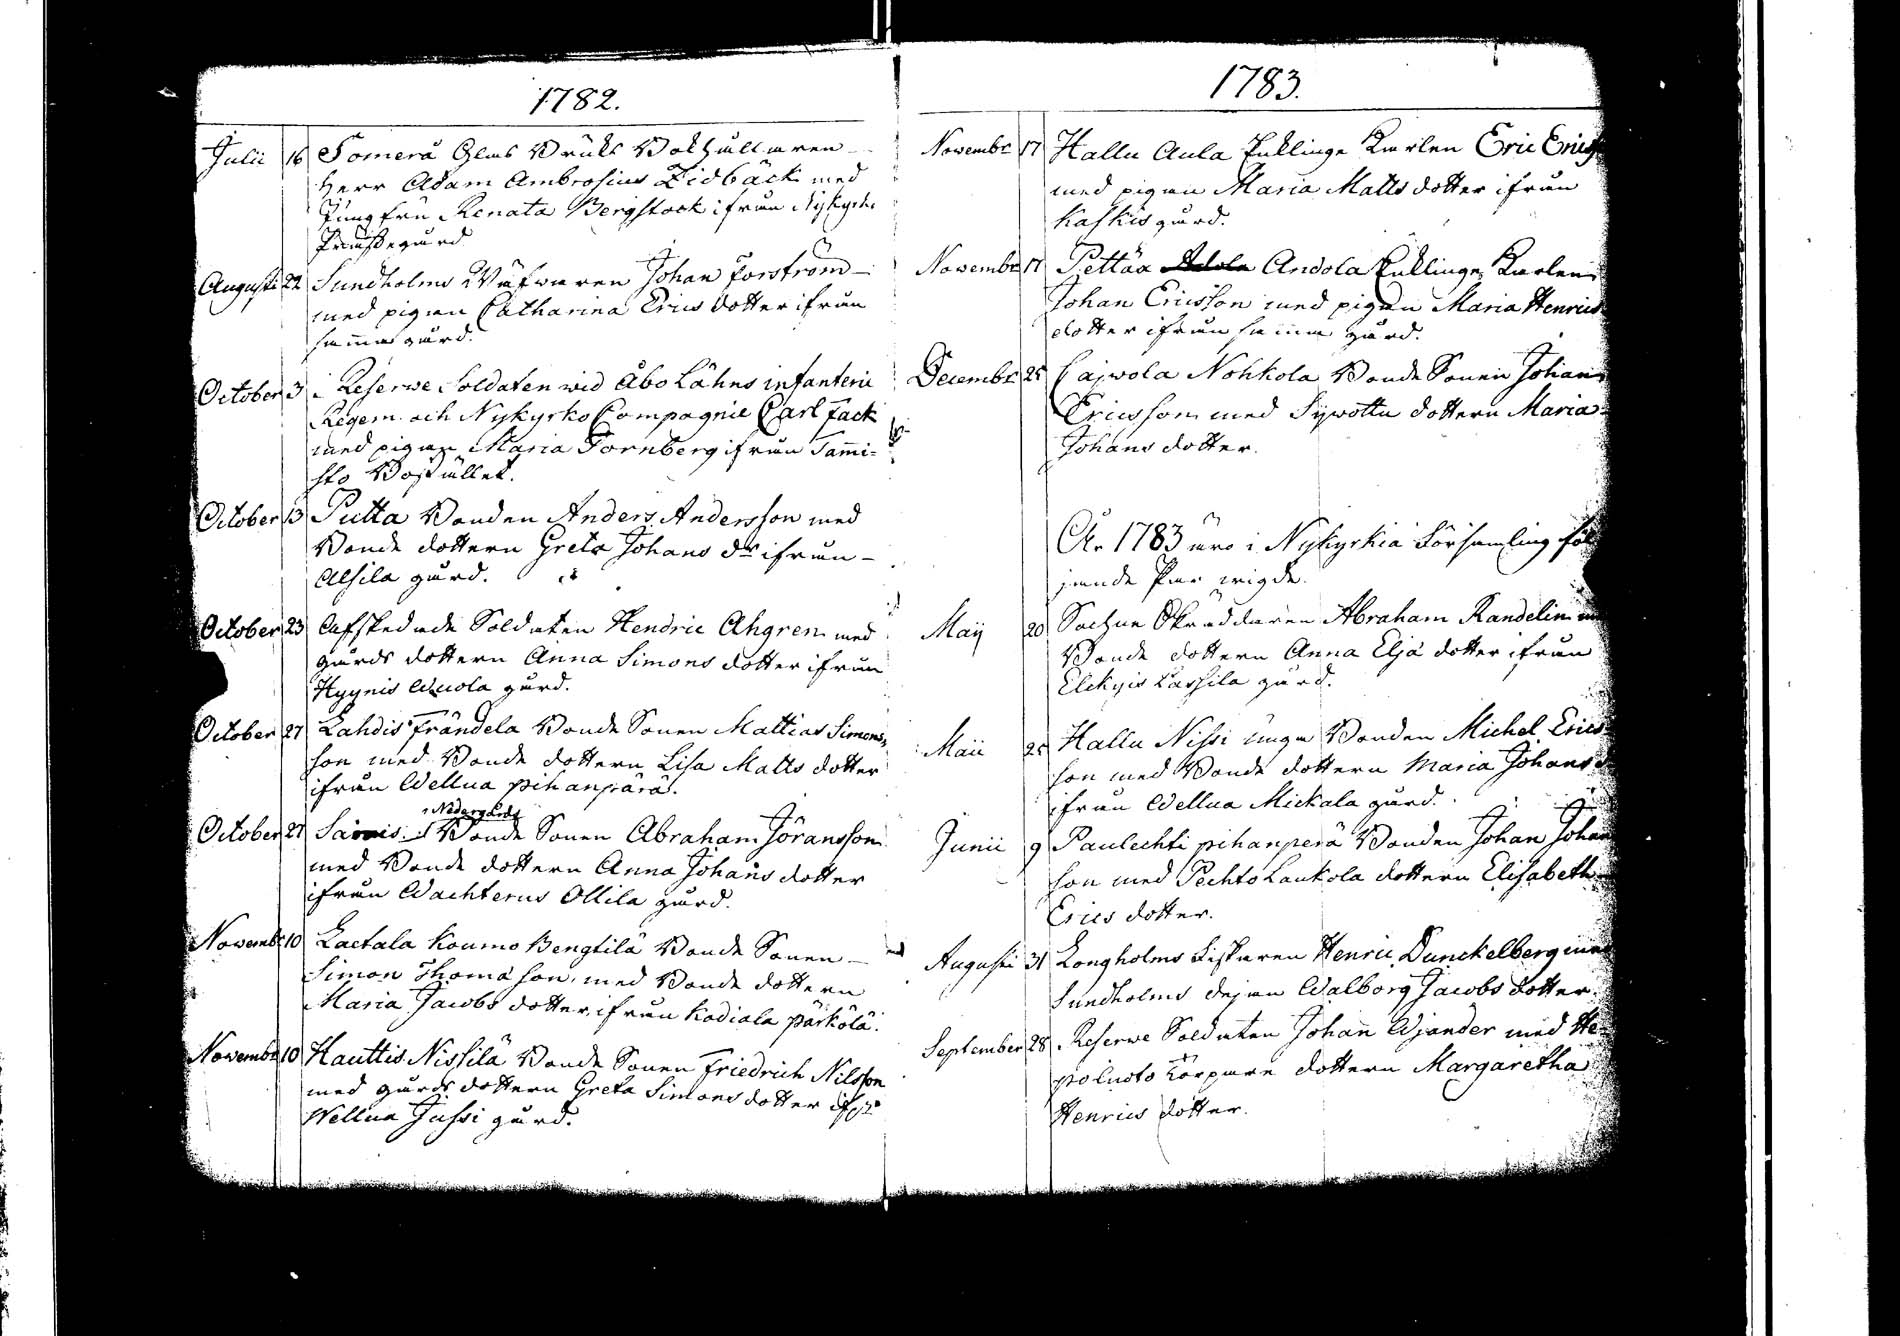 1782.
Julii 16 Somerå Glas Bruks Bokhållaren
Herr Adam Ambrosius Zidbäck med
Jungfru Renata Bergstock ifrån Nykyrko
Prästegård
Augusti 22 Sundholms Wäfwaren Johan Forström
med pigan Catharina Erics dotter ifrån
samma gård.
October 3 Reserwe Soldaten wid Åbo Lähns infanterie
Regem. och Nykyrko Compagnie Carl Fack
med pigan Maria Tornberg ifrån Tammi=
sto Bostället.
October 13 Putta Bonden Anders Andersson med
Bonde dottern Greta Johans dr ifrån
Alsila gård.
October 23 Afskedade Soldaten Hendric Ahgren med
gårds dottern Anna Simons dotter ifrån
Hyynis gård.
October 27 Lahdis Frändela Bonde Sonen Mattias Simons
son med Bonde dottern Lisa Matts dotter
ifrån Wellua pihanpärä.
Nedergårds
October 27 Bonde Sonen Abraham Jöransson
med Bonde dottern Anna Johans dotter
ifrån Wachterus Ollila gård.
Novembr 10 Laetala Koumo Bengtilä Bonde Sonen
Simon Thomason med Bonde dottern
Maria Jacobs dotter ifrån Kodiala pärkölä.
Novembr 10 Hauttis Nissilä Bonde Sonen Friedrich Nilsson
med gårds dottern Greta Simons dotter
Wellua Jussi gård.
1783.
Novembr 17 Hallu Aula Enklinge Karlen Eric
med pigan Maria Matts dotter ifrån
Kaskis gård.
Novembr 17 Pettäx Andola Enklinge Karlen
Johan Ericsson med pigan Maria Henrics
dotter ifrån samma gård.
Decembr 25 Cajwola Nohkola Bonde Sonen Johan
Ericsson med Sywottu dottern Maria
Johans dotter.
År 1783 äro i Nykyrkia Församling föl
jande Par wigde.
Maij 20 Skräddaren Abraham Randelin
Bonde dottern Anna Eljä dotter ifrån
Elckyis Cassila gård.
Maii 25 Hallu Nissi unga Bonden Michel Erics
son med Bonde dottern Maria Johans
ifrån Wellua Mickala gård.
Junii 9 Paulechti pihanperä Bonden Johan Johan
son med Pechto Laukola dottern Elisabeth
Erics dotter.
Augusti 31 Longholms Fiskaren Henric Dunckelberg med
Sundholms dejan Walborg Jacobs dotter.
September 28 Reserwe Soldaten Johan Wjander med He=
poluoto Torpare dottern Margaretha
Henrics dotter.